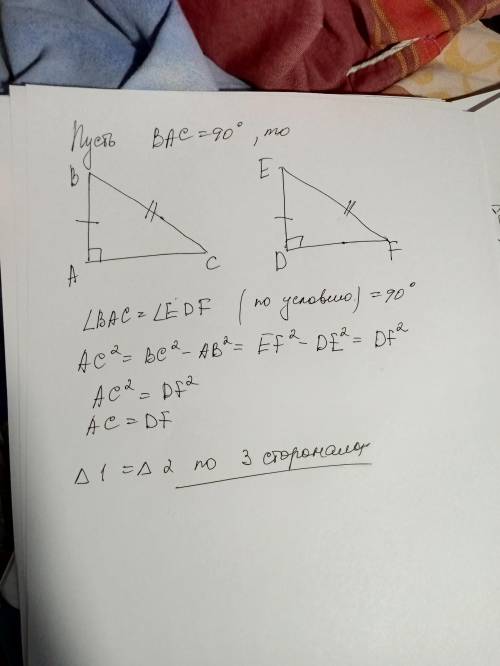 Пусть BAC = 90°, то
B
E
A
C
D
F
∠BAC = ∠EDF (по условию) = 90°
AC² = BC² - AB² = EF² - DE² = DF²
AC² = DF²
AC = DF
Δ 1 = Δ 2 по 3 сторонам